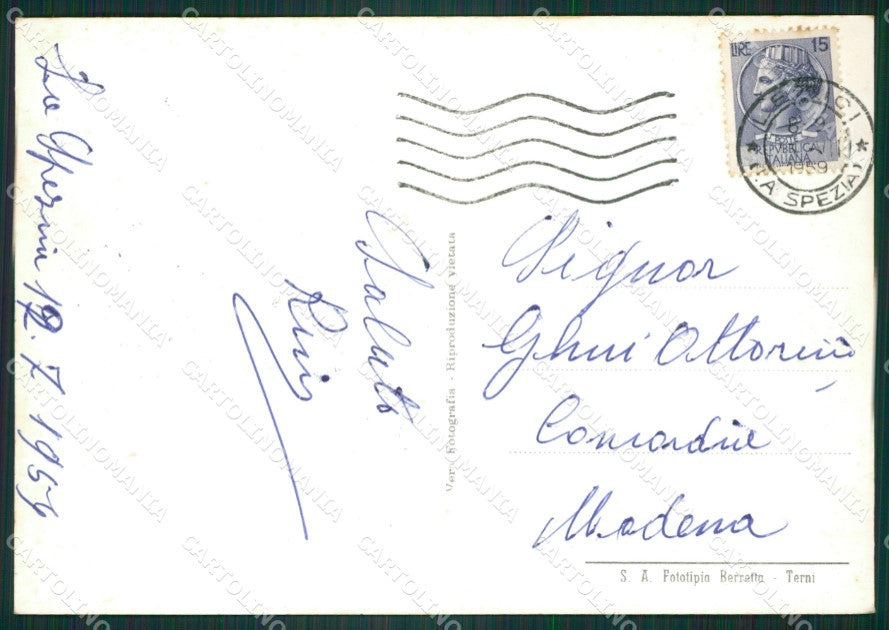 La Spezia 12.7.1959
Saluti
Luis
Vera Fotografia - Riproduzione vietata
LIRE 15
REPUBBLICA
ITALIANA
LERICI
1959
(LA SPEZIA)
Signor
Ghini Ottorino
Concordia
Modena
S. A. Fototipia Berretta - Terni
CARTOLINOMANIA